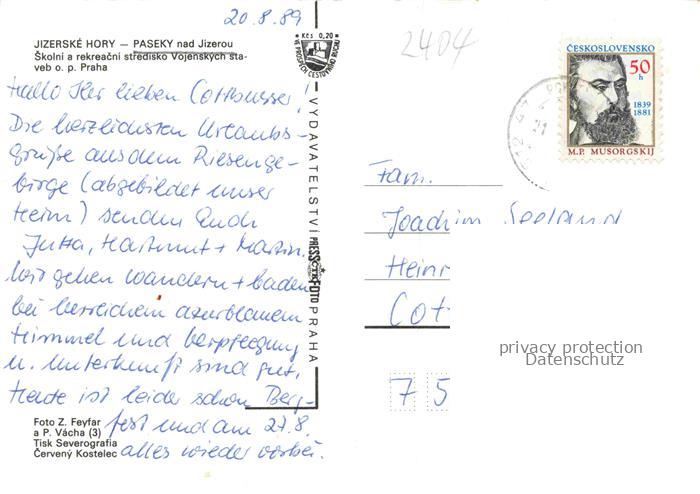 20.8.89
JIZERSKÉ HORY — PASEKY nad Jizerou
Školní a rekreační středisko Vojenských sta-
veb o. p. Praha
Hallo Ihr lieben Cottbusser!
Die herzlichsten Urlaubs-
grüße aus dem Riesenge-
birge (abgebildet unser
Heim) senden Euch
Jutta, Hartmut + Martin.
Wir gehen wandern + baden
bei herrlichem azurblauem
Himmel und Verpflegung
u. Unterkunft sind gut,
Heute ist leider schon Berg-
fest und am 27.8.
alles wieder vorbei.
Foto Z. Feyfar
a P. Vácha (3)
Tisk Severografia
Červený Kostelec
Kčs 0,20
VE PROSPĚCH CESTOVNÍHO RUCHU
VYDAVATELSTVÍ PRESSFOTO PRAHA
ČTK
2404
ČESKOSLOVENSKO
50
h
1839
1881
M.P. MUSORGSKIJ
Fam.
Joachim
Heinr
Cot
privacy protection
Datenschutz
7 5